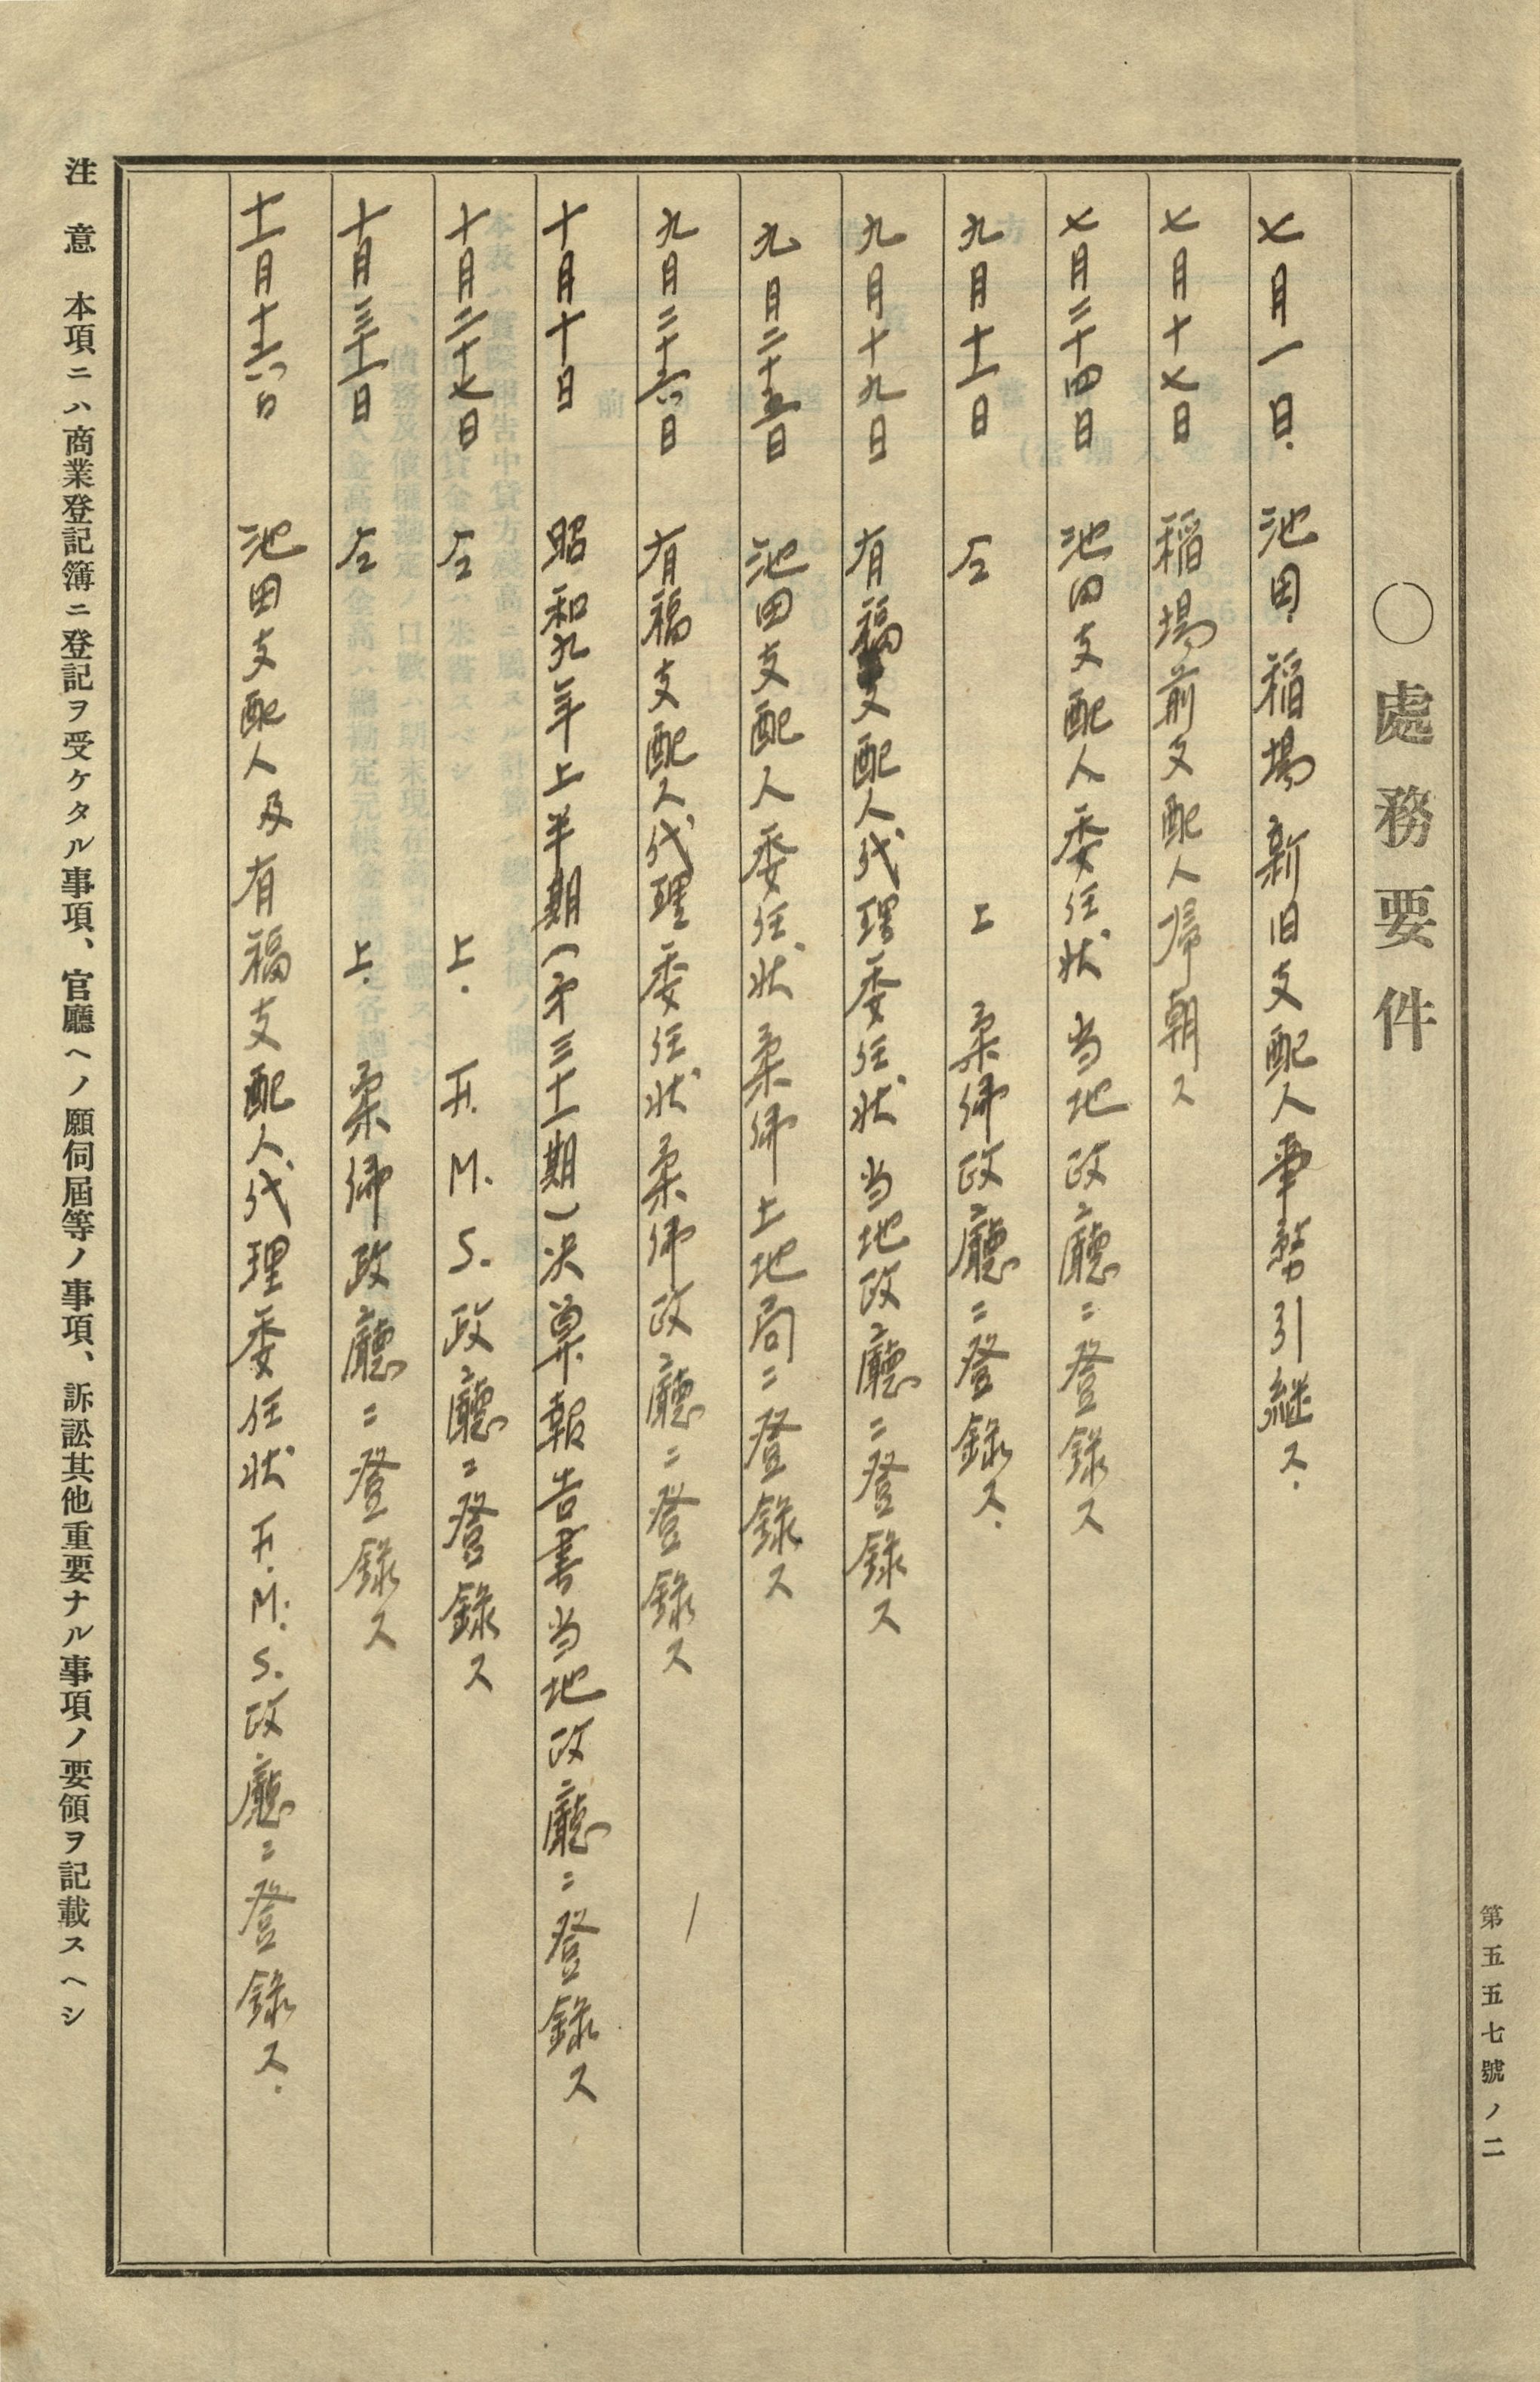 第五五七號ノ二
〇處務要件
七月一日. 池田. 稲場新旧支配人事務引継ス.
七月十七日 稲場前支配人帰朝ス
七月二十四日 池田支配人委任状 当地政廳ニ登録ス
九月十一日 仝 上 柔佛政廳ニ登録ス.
九月十九日 有福支配人代理委任状 当地政廳ニ登録ス
九月二十五日 池田支配人委任状 柔佛土地局ニ登録ス
九月二十六日 有福支配人代理委任状柔佛政廳ニ登録ス
十月十日 昭和九年上半期(第三十一期)決算報告書当地政廳ニ登録ス
十月二十七日 仝 上. F. M. S. 政廳ニ登録ス
十月三十一日 仝 上. 柔佛政廳ニ登録ス
十一月十六日 池田支配人及有福支配人代理委任状 F. M. S. 政廳ニ登録ス.
注意 本項ニハ商業登記簿ニ登記ヲ受ケタル事項、官廳ヘノ願伺屆等ノ事項、訴訟其他重要ナル事項ノ要領ヲ記載スヘシ